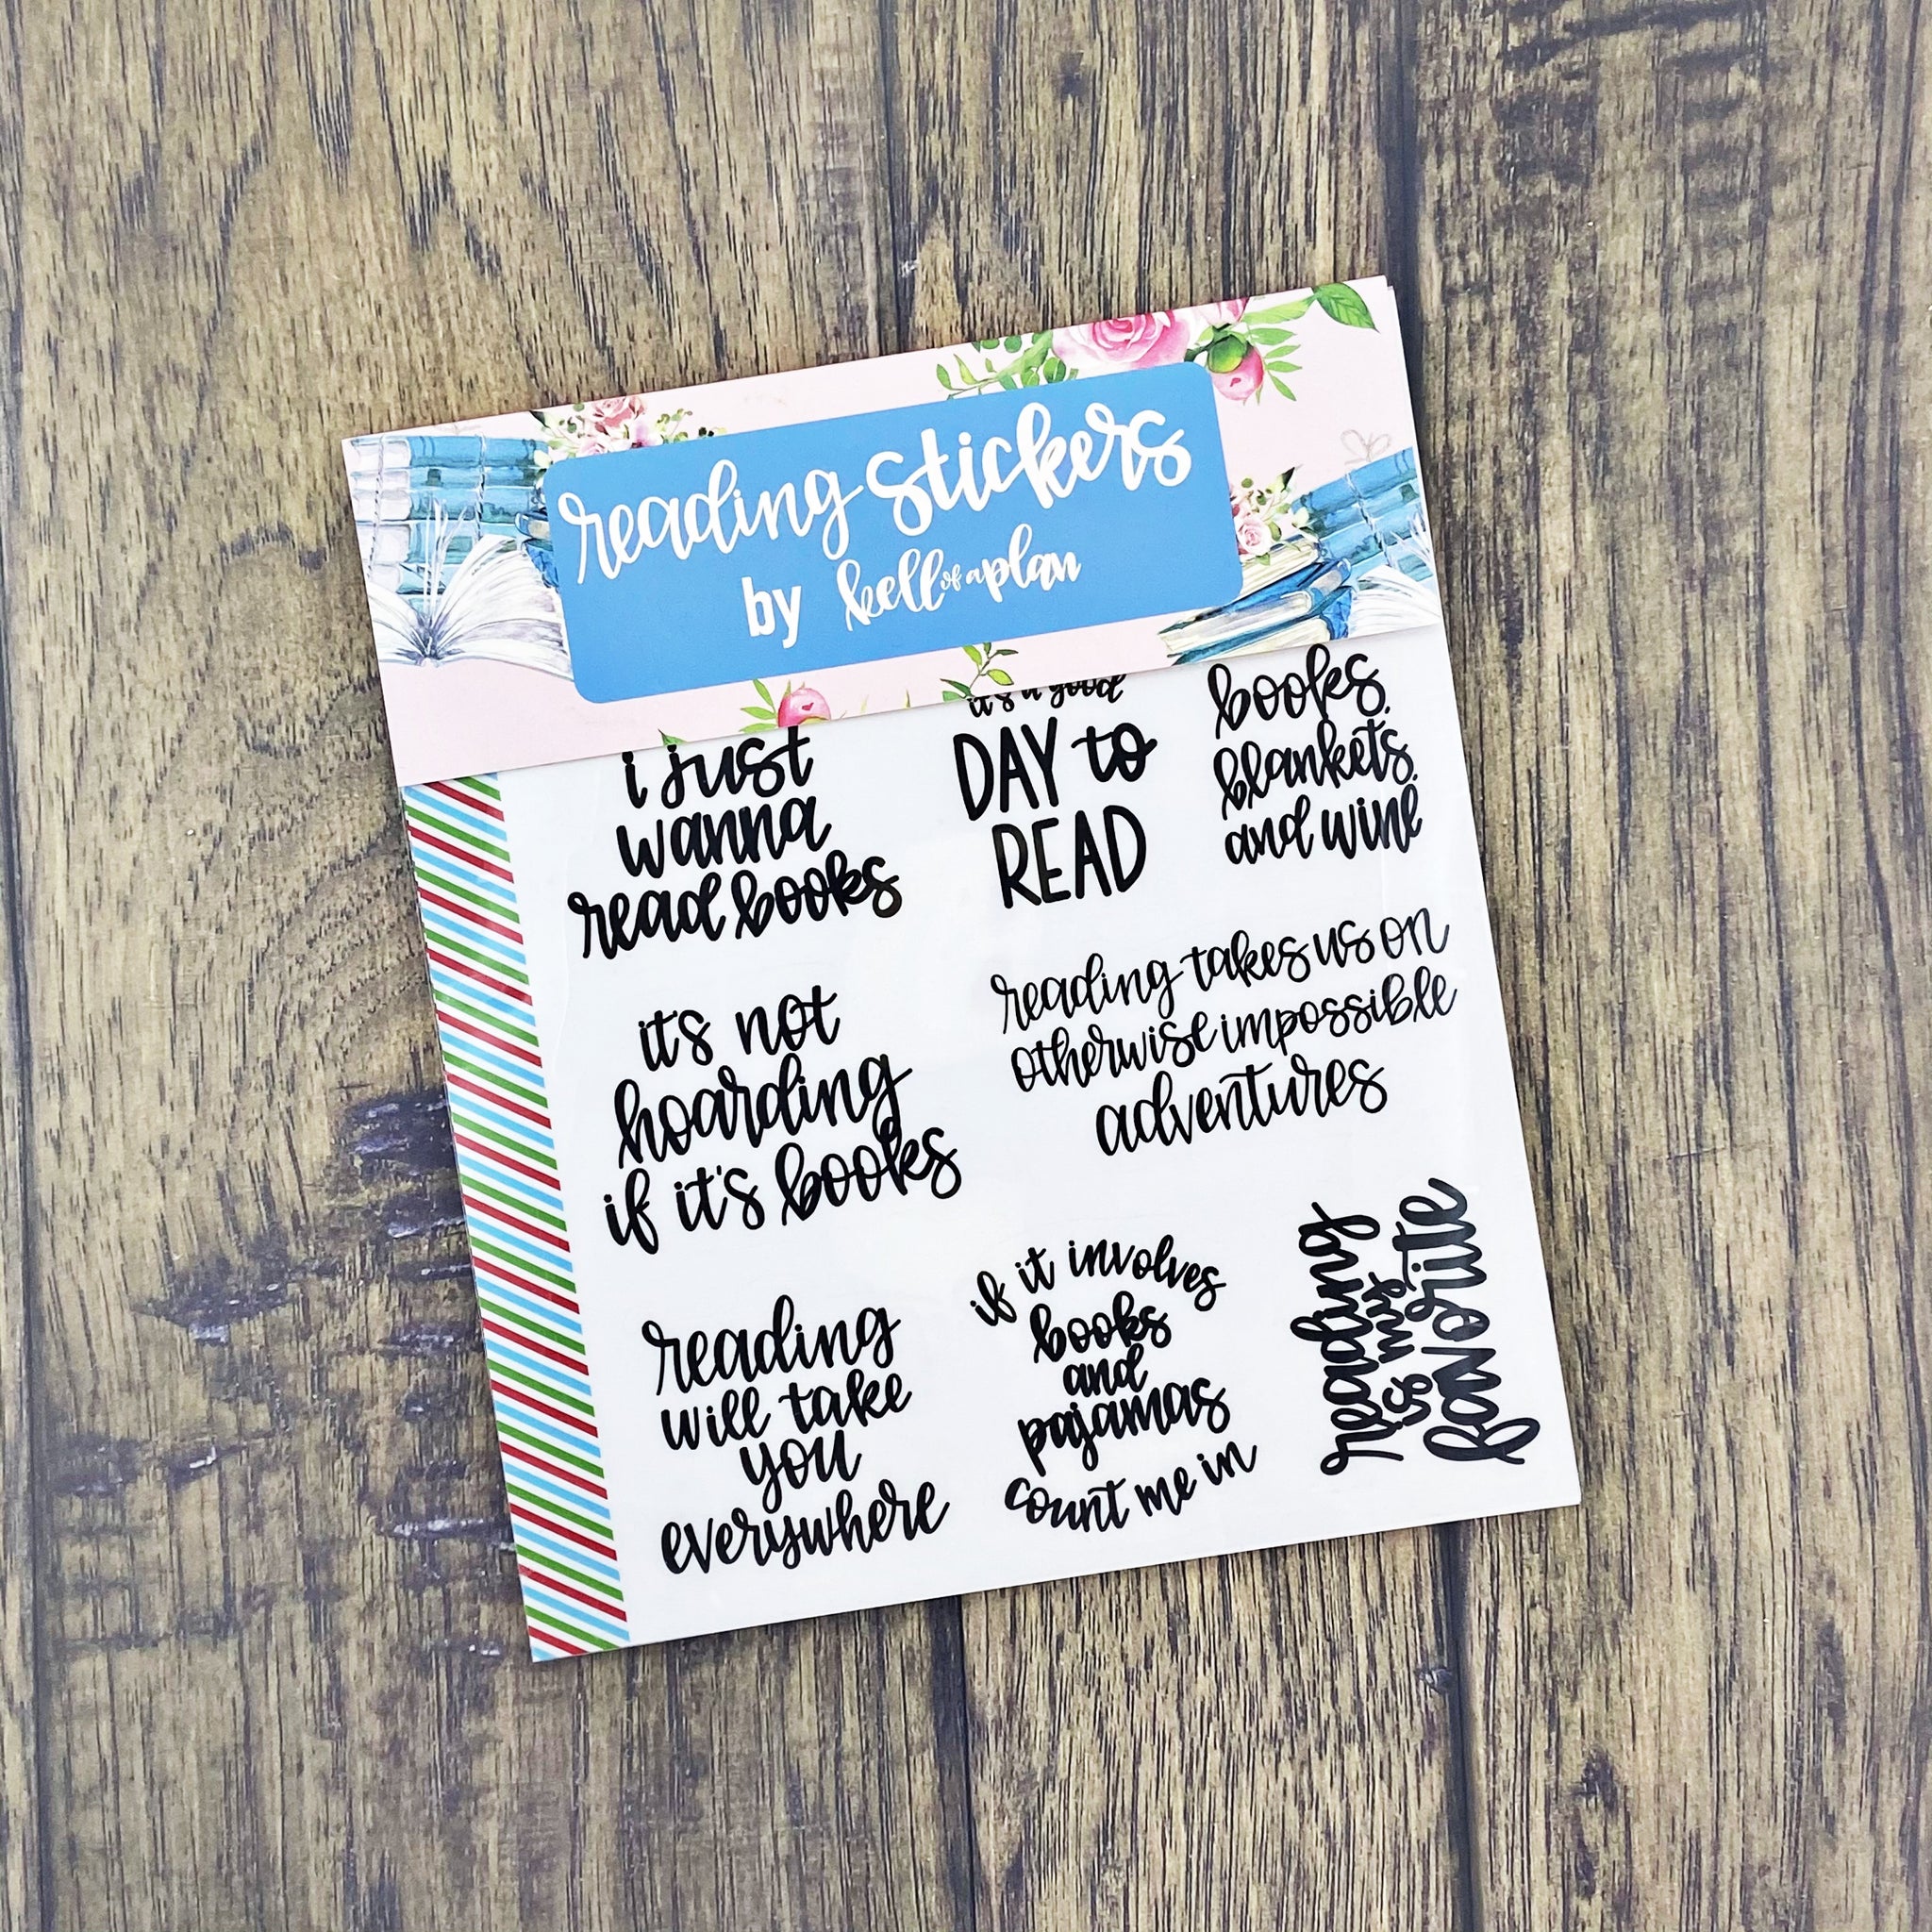 reading stickers
by kell of a plan
i just
wanna
read books
it's a good
DAY to
READ
books,
blankets,
and wine
it's not
hoarding
if it's books
reading takes us on
otherwise impossible
adventures
reading
will take
you
everywhere
if it involves
books
and
pajamas
count me in
reading
is my
favorite